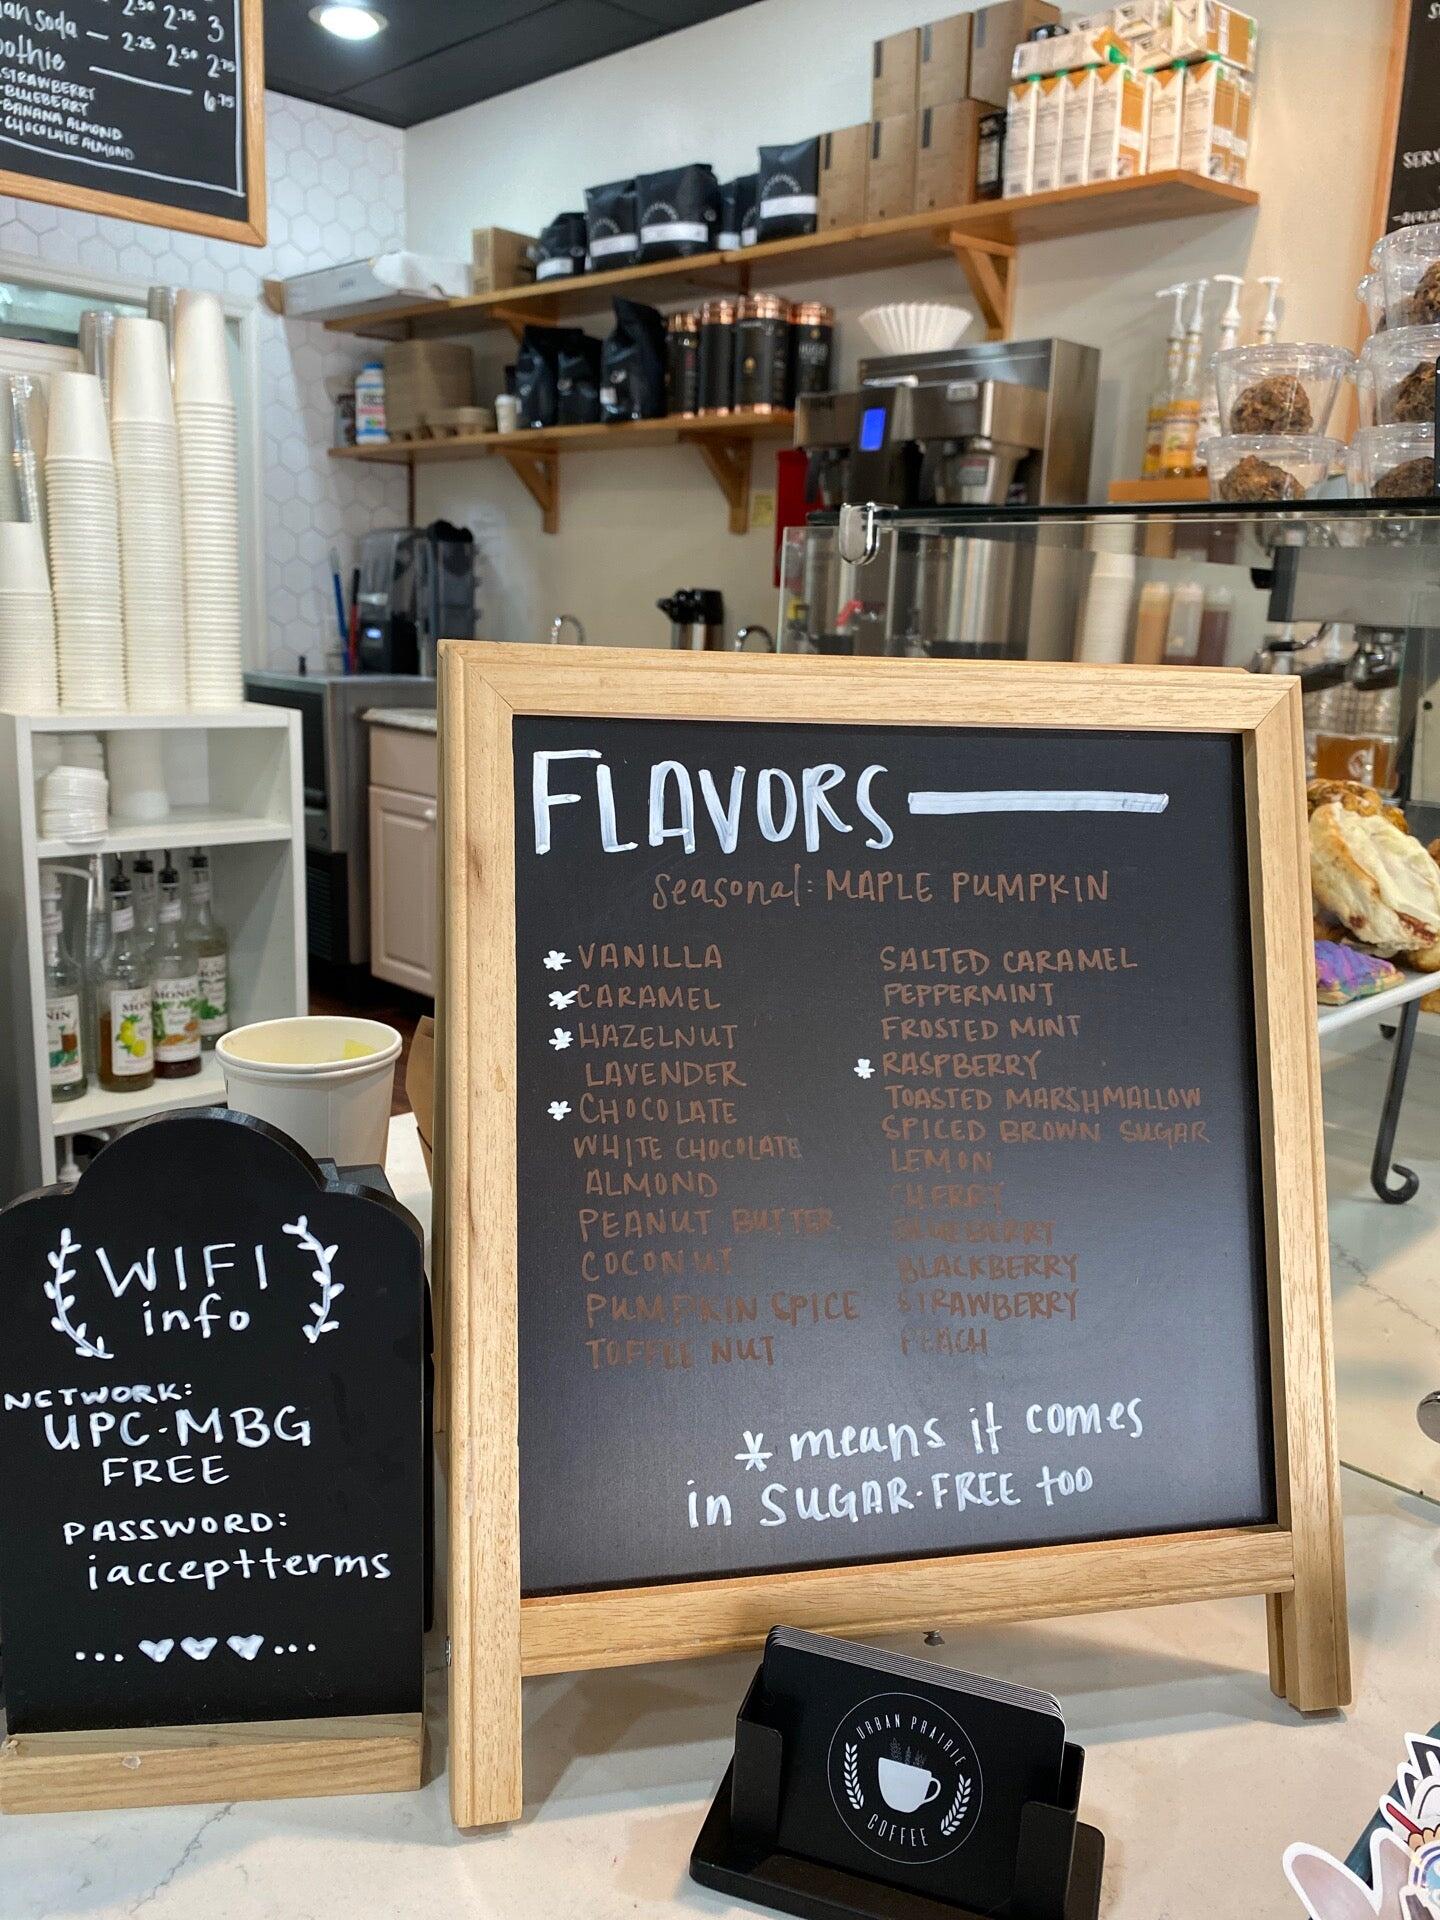 an soda — 2.25 2.50 2.75
2.50 2.75 3
oothie — 6.75
STRAWBERRY
-BLUEBERRY
-BANANA ALMOND
-CHOCOLATE ALMOND
FLAVORS
seasonal: MAPLE PUMPKIN
* VANILLA
* CARAMEL
* HAZELNUT
LAVENDER
* CHOCOLATE
WHITE CHOCOLATE
ALMOND
PEANUT BUTTER
COCONUT
PUMPKIN SPICE
TOFFEE NUT
SALTED CARAMEL
PEPPERMINT
FROSTED MINT
* RASPBERRY
TOASTED MARSHMALLOW
SPICED BROWN SUGAR
LEMON
CHERRY
BLUEBERRY
BLACKBERRY
STRAWBERRY
PEACH
* means it comes
in SUGAR-FREE too
MONIN
MONIN
WIFI
info
NETWORK:
UPC-MBG
FREE
PASSWORD:
iacceptterms
URBAN PRAIRIE
COFFEE